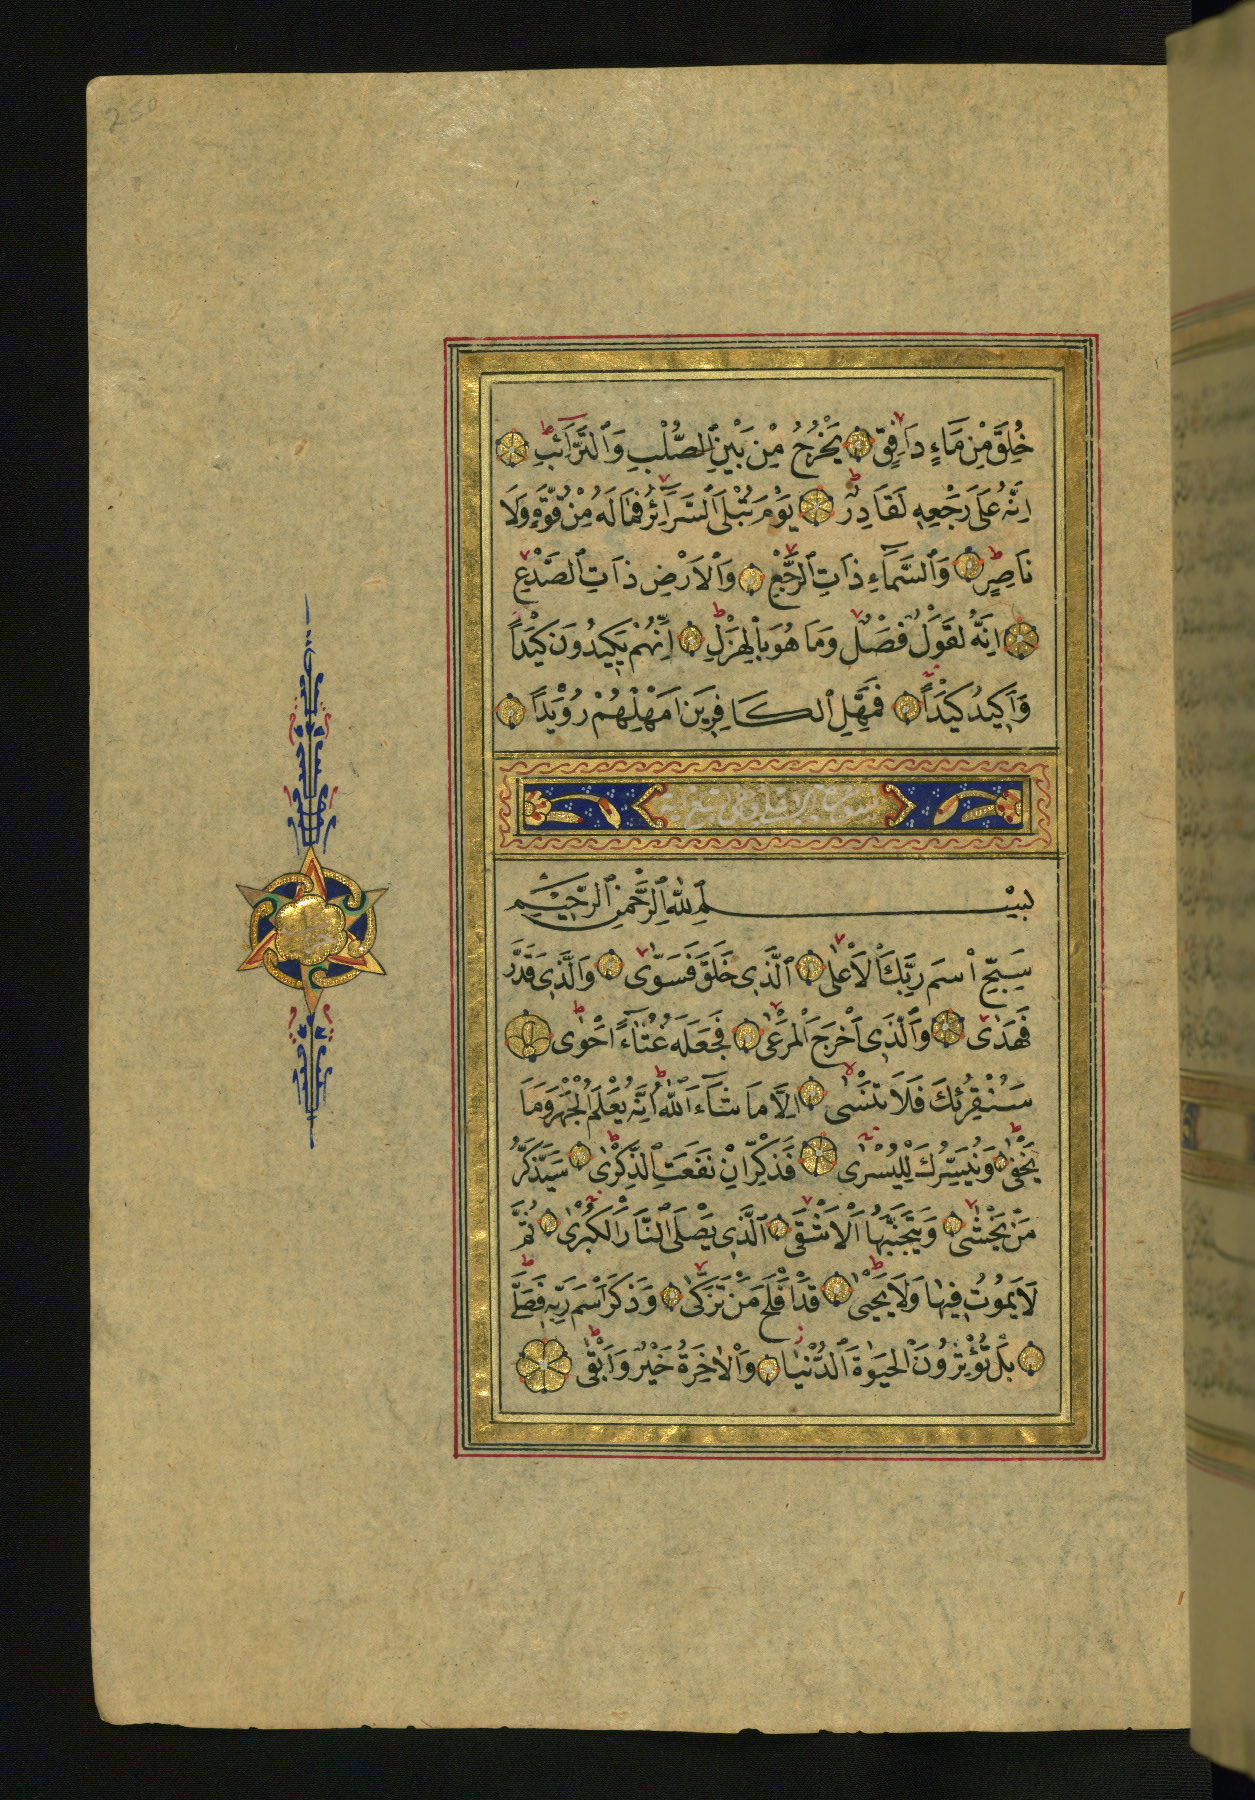 250
خُلِقَ مِنْ مَاءٍ دَافِقٍ يَخْرُجُ مِنْ بَيْنِ الصُّلْبِ وَالتَّرَائِبِ
اِنَّهُ عَلَى رَجْعِهِ لَقَادِرٌ يَوْمَ تُبْلَى السَّرَائِرُ فَمَا لَهُ مِنْ قُوَّةٍ وَلَا
نَاصِرٍ وَالسَّمَاءِ ذَاتِ الرَّجْعِ وَالْاَرْضِ ذَاتِ الصَّدْعِ
اِنَّهُ لَقَوْلٌ فَصْلٌ وَمَا هُوَ بِالْهَزْلِ اِنَّهُمْ يَكِيدُونَ كَيْدًا
وَاَكِيدُ كَيْدًا فَمَهِّلِ الْكَافِرِينَ اَمْهِلْهُمْ رُوَيْدًا
بِسْمِ اللهِ الرَّحْمٰنِ الرَّحِيمِ
سَبِّحِ اسْمَ رَبِّكَ الْاَعْلَى الَّذِي خَلَقَ فَسَوّٰى وَالَّذِي قَدَّرَ
فَهَدٰى وَالَّذِي اَخْرَجَ الْمَرْعٰى فَجَعَلَهُ غُثَاءً اَحْوٰى
سَنُقْرِئُكَ فَلَا تَنْسٰى اِلَّا مَا شَاءَ اللهُ اِنَّهُ يَعْلَمُ الْجَهْرَ وَمَا
يَخْفٰى وَنُيَسِّرُكَ لِلْيُسْرٰى فَذَكِّرْ اِنْ نَفَعَتِ الذِّكْرٰى سَيَذَّكَّرُ
مَنْ يَخْشٰى وَيَتَجَنَّبُهَا الْاَشْقَى الَّذِي يَصْلَى النَّارَ الْكُبْرٰى ثُمَّ
لَا يَمُوتُ فِيهَا وَلَا يَحْيٰى قَدْ اَفْلَحَ مَنْ تَزَكّٰى وَذَكَرَ اسْمَ رَبِّهِ فَصَلّٰى
بَلْ تُؤْثِرُونَ الْحَيٰوةَ الدُّنْيَا وَالْاٰخِرَةُ خَيْرٌ وَاَبْقٰى